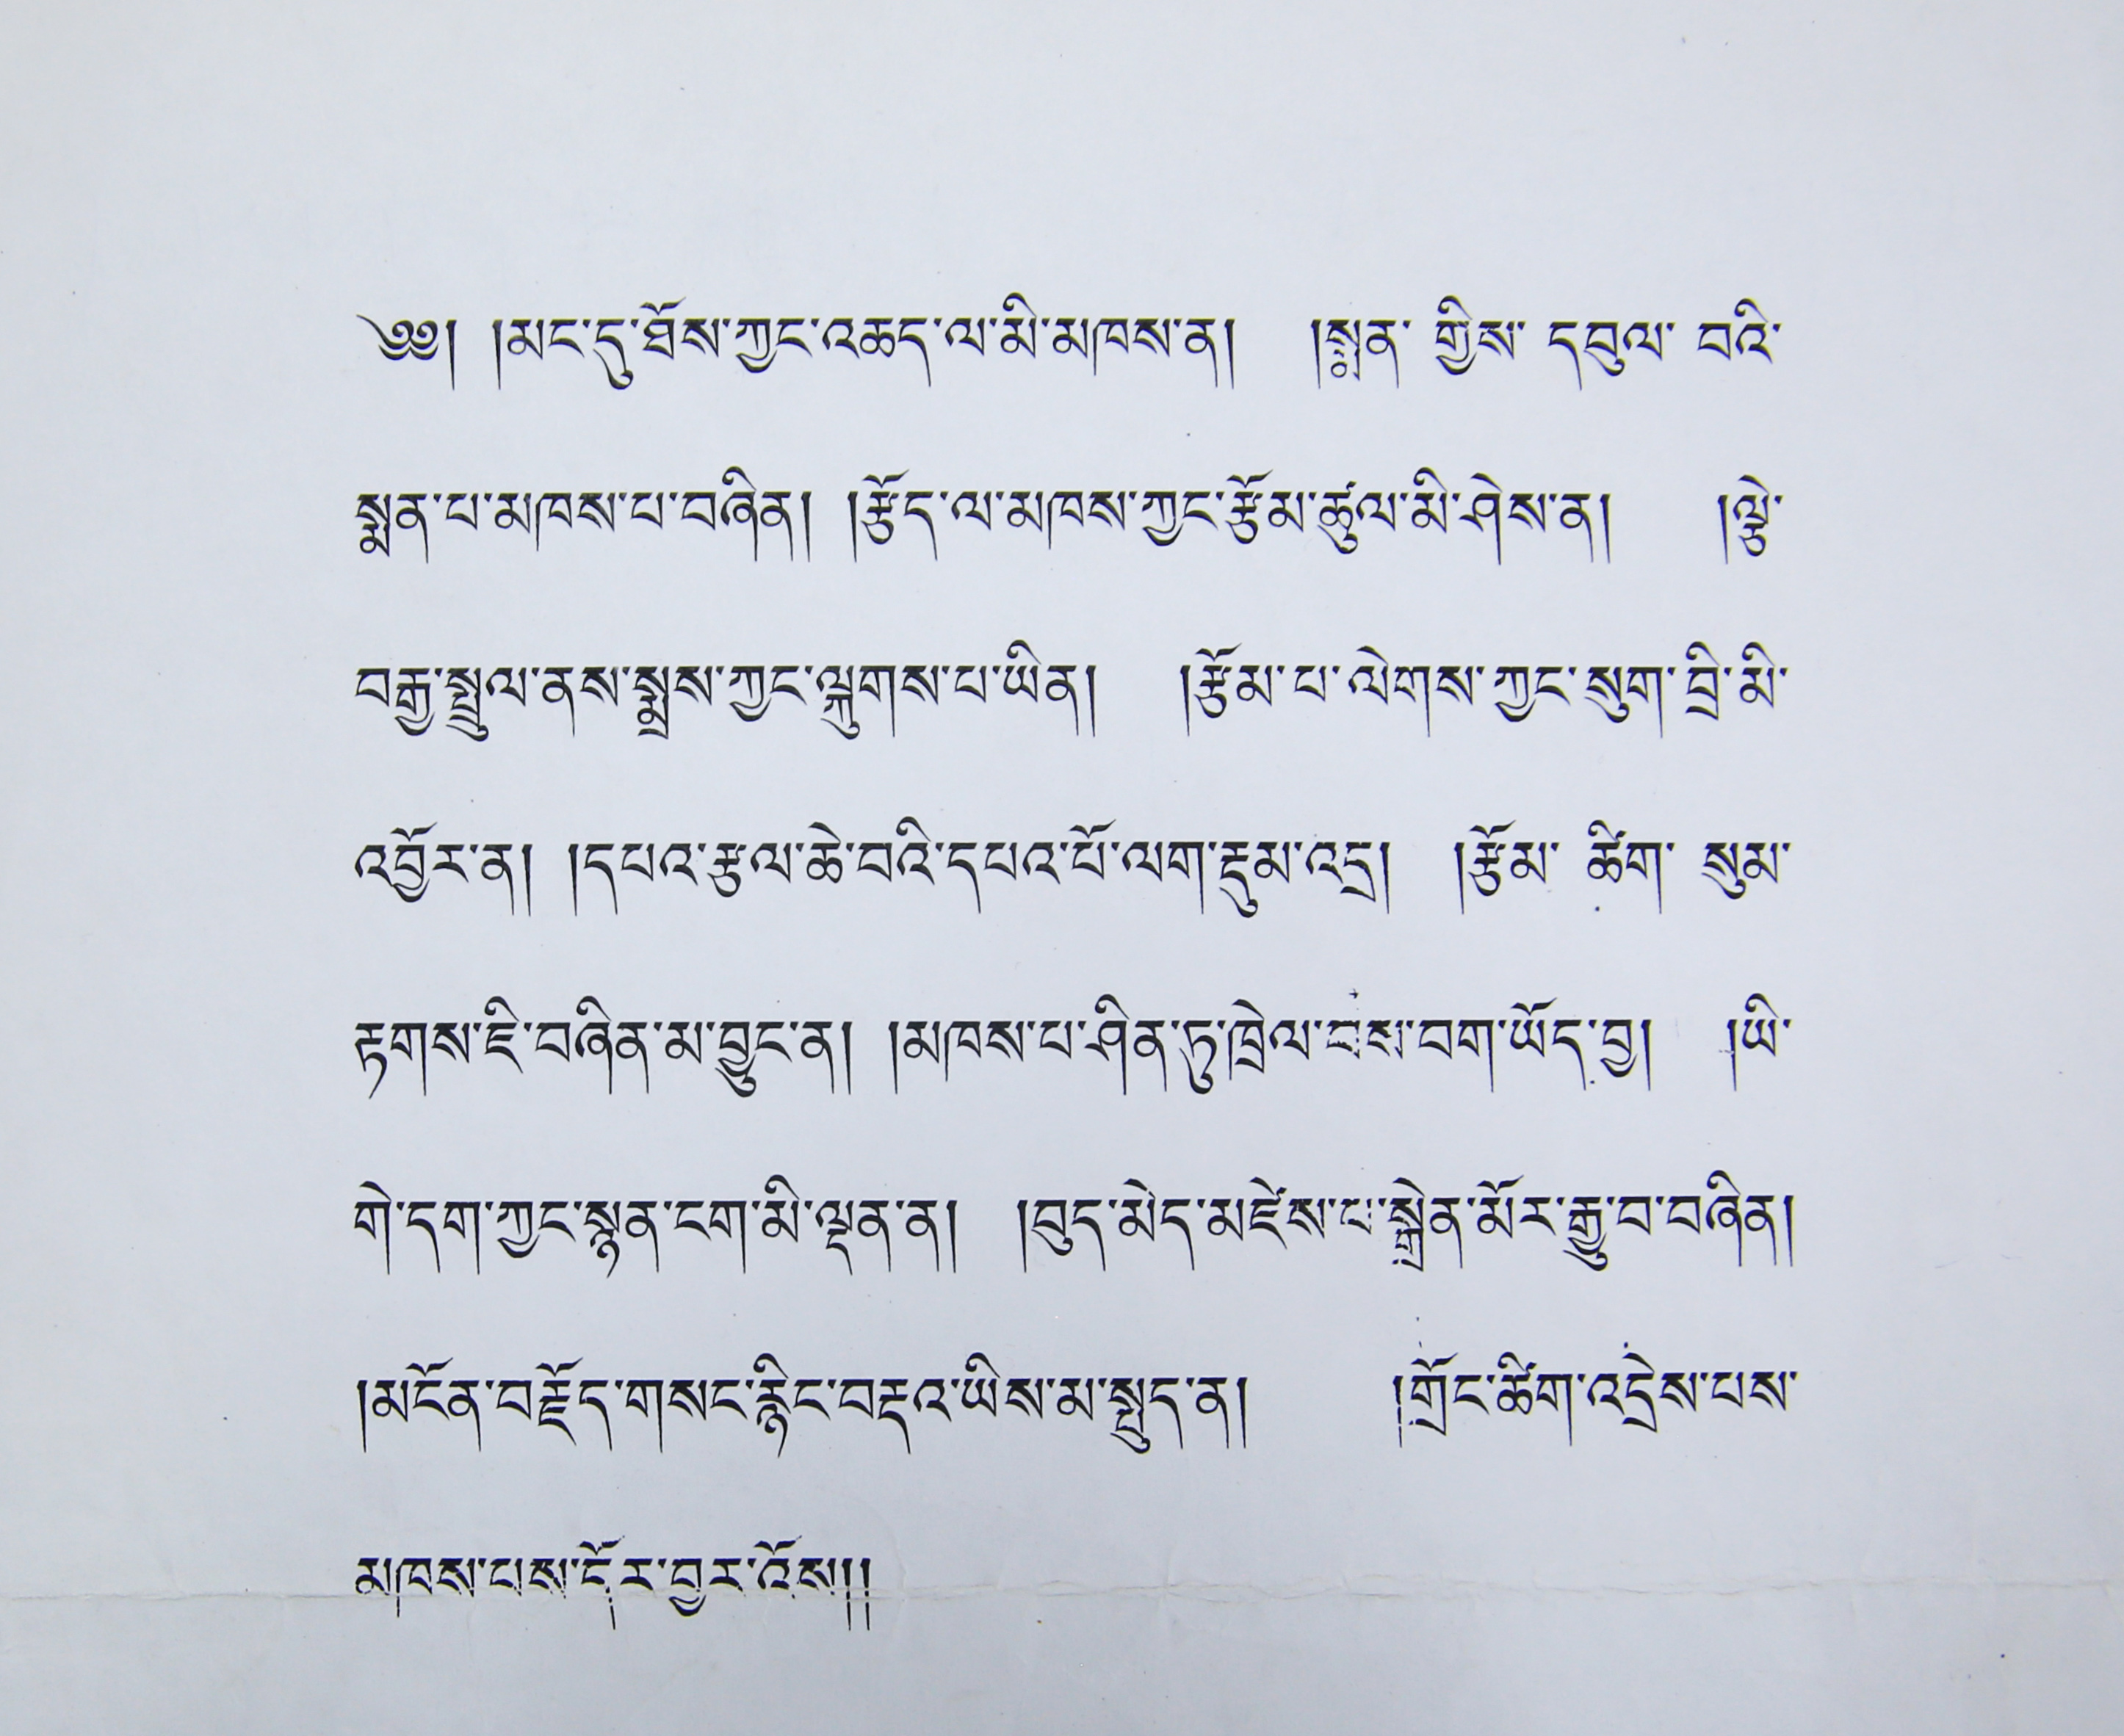 ༄༅། །མང་དུ་ཐོས་ཀྱང་འཆད་ལ་མི་མཁས་ན། །སྨན་ གྱིས་ དབུལ་ བའི་
སྨན་པ་མཁས་པ་བཞིན། །རྩོད་ལ་མཁས་ཀྱང་རྩོམ་ཚུལ་མི་ཤེས་ན། །ལྕེ་
བརྒྱ་སྤྲུལ་ནས་སྨྲས་ཀྱང་ལྐུགས་པ་ཡིན། །རྩོམ་པ་ལེགས་ཀྱང་སུག་བྲི་མི་
འབྱོར་ན། །དཔའ་རྩལ་ཆེ་བའི་དཔའ་བོ་ལག་རྡུམ་འདྲ། །རྩོམ་ ཚིག་ སུམ་
རྟགས་ཇི་བཞིན་མ་བྱུང་ན། །མཁས་པ་ཤིན་ཏུ་ཁྲེལ་བས་བག་ཡོད་བྱ། །ཡི་
གེ་དག་ཀྱང་སྙན་ངག་མི་ལྡན་ན། །བུད་མེད་མཛེས་པ་སྒྲེན་མོར་རྒྱུ་བ་བཞིན།
།མངོན་བརྗོད་གསང་རྙིང་བརྡའ་ཡིས་མ་སྤུད་ན། །གྲོང་ཚིག་འདྲེས་པས་
མཁས་པས་དོར་བྱར་འོས།།